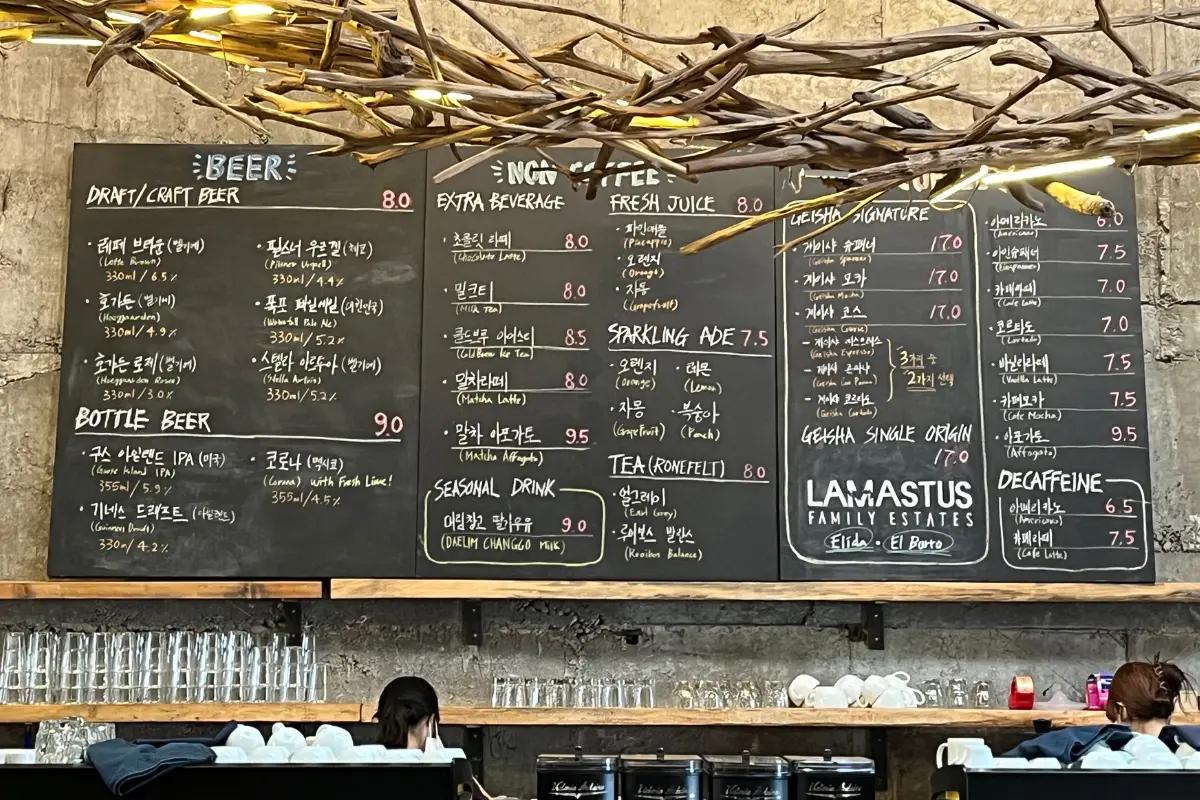 BEER
DRAFT/CRAFT BEER 8.0
레페 브라운 (벨기에)
(Leffe Brown)
330ml / 6.5%
호가든 (벨기에)
(Hoegaarden)
330ml / 4.9%
호가든 로제 (벨기에)
(Hoegaarden Rosee)
330ml / 3.0%
필스너 우르켈 (체코)
(Pilsner Urquell)
330ml / 4.4%
폭포 페일에일 (대한민국)
(Waterfall Pale Ale)
330ml / 5.2%
스텔라 아르투아 (벨기에)
(Stella Artois)
330ml / 5.2%
BOTTLE BEER 9.0
구스 아일랜드 IPA (미국)
(Goose Island IPA)
355ml / 5.9%
기네스 드래프트 (아일랜드)
(Guinness Draft)
330ml / 4.2%
코로나 (멕시코)
(Corona) with Fresh Lime!
355ml / 4.5%
NON COFFEE
EXTRA BEVERAGE
초콜릿 라떼 8.0
(Chocolate Latte)
밀크티 8.0
(Milk Tea)
콜드브루 아이스티 8.5
(Cold Brew Ice Tea)
말차라떼 8.0
(Matcha Latte)
말차 아포가토 9.5
(Matcha Affogato)
SEASONAL DRINK
대림창고 딸기우유 9.0
(DAELIM CHANGGO Milk)
FRESH JUICE 8.0
파인애플
(Pineapple)
오렌지
(Orange)
자몽
(Grapefruit)
SPARKLING ADE 7.5
오렌지
(Orange)
레몬
(Lemon)
자몽
(Grapefruit)
복숭아
(Peach)
TEA (RONEFELT) 8.0
얼그레이
(Earl Grey)
루이보스 발란스
(Rooibos Balance)
GEISHA SIGNATURE
게이샤 슈페너 17.0
(Geisha Spanner)
게이샤 모카 17.0
(Geisha Mocha)
게이샤 코스 17.0
(Geisha Course)
게이샤 에스프레소
(Geisha Espresso)
게이샤 콘파나
(Geisha Con Panna)
게이샤 코르타도
(Geisha Cortado)
3가지 중
2가지 선택
GEISHA SINGLE ORIGIN
17.0
LAMASTUS
FAMILY ESTATES
Elida · El Burro
아메리카노 6.0
(Americano)
아인슈페너 7.5
(Einspanner)
카페라떼 7.0
(Cafe Latte)
코르타도 7.0
(Cortado)
바닐라라떼 7.5
(Vanilla Latte)
카페모카 7.5
(Cafe Mocha)
아포가토 9.5
(Affogato)
DECAFFEINE
아메리카노 6.5
(Americano)
카페라떼 7.5
(Cafe Latte)
Victoria Arduino
Victoria Arduino
Victoria Arduino
Victoria Arduino